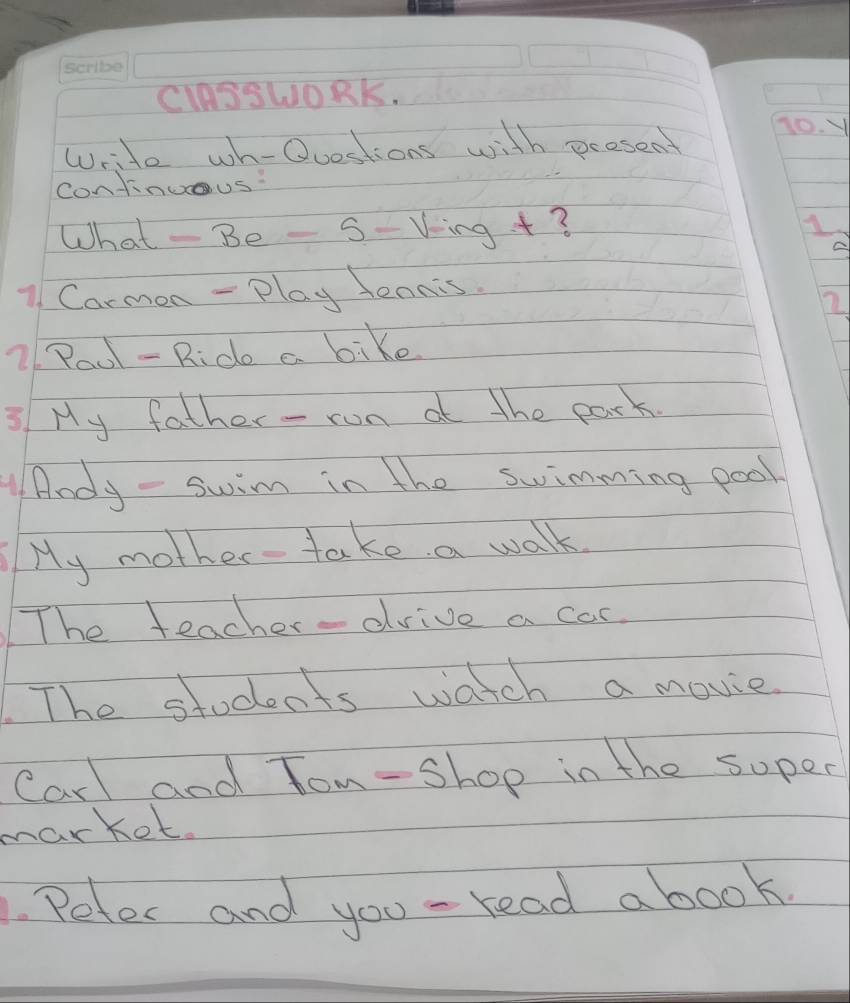 Scribe
CLASSWORK.
Write wh-Questions with present
continuous:
What - Be - S - V-ing + ?
1. Carmen - Play tennis.
2. Paul - Ride a bike.
3. My father - run at the park.
4. Andy - swim in the swimming pool.
5. My mother - take a walk.
The teacher - drive a car.
The students watch a movie.
Carl and Tom - Shop in the super
market.
Peter and you - read a book.
10. y
1.
2